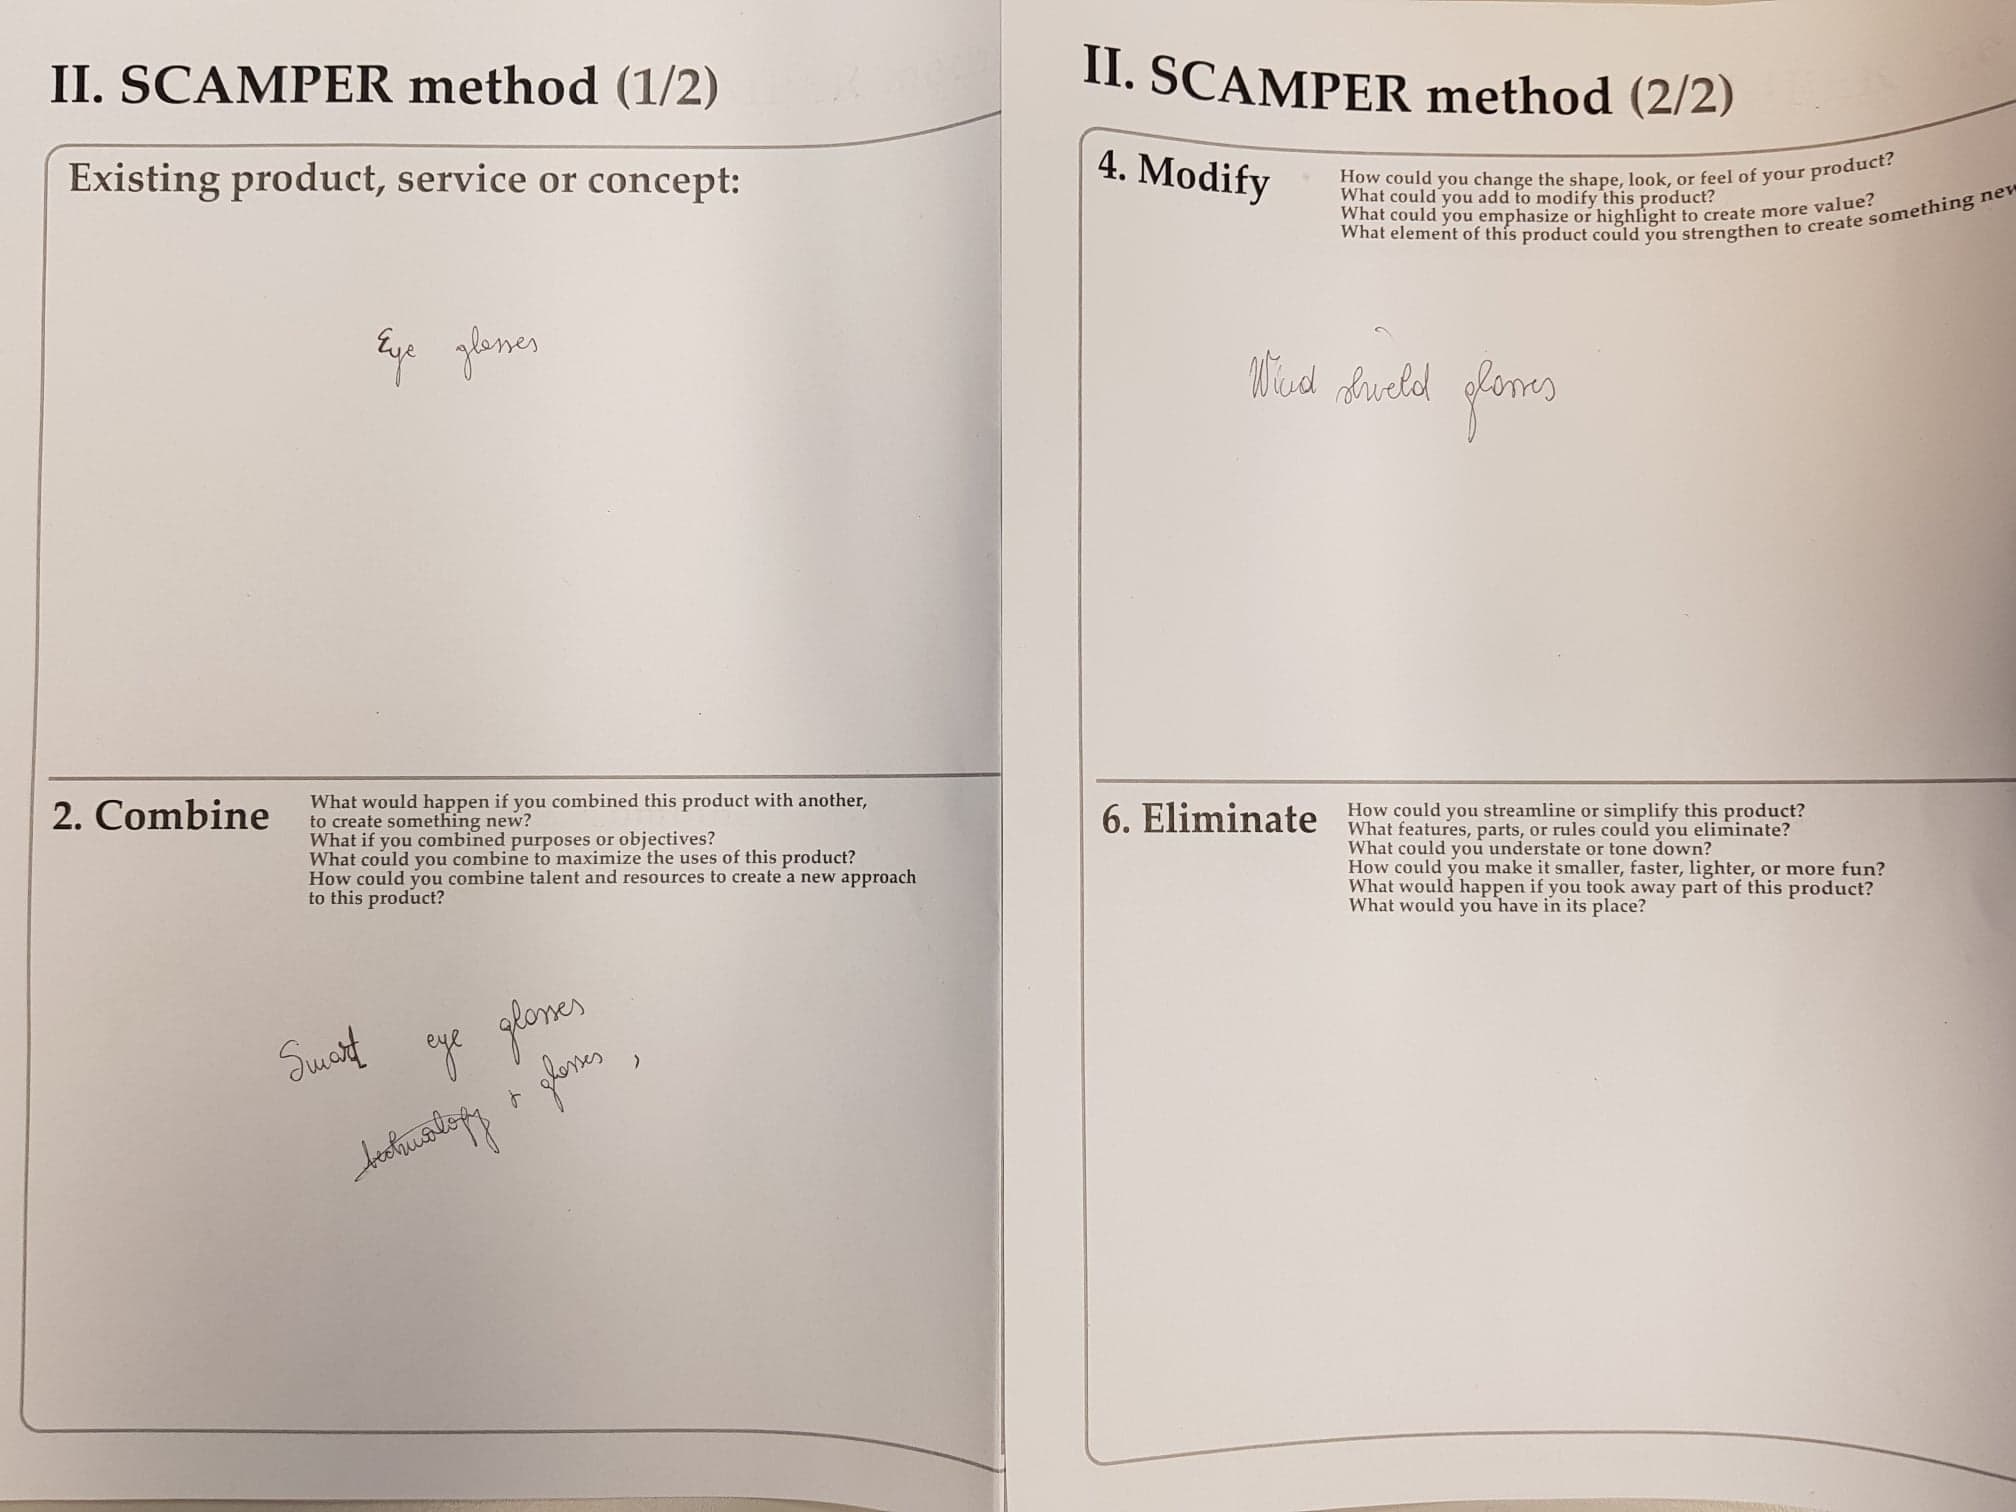 II. SCAMPER method (1/2)
Existing product, service or concept:
Eye glasses
2. Combine
What would happen if you combined this product with another,
to create something new?
What if you combined purposes or objectives?
What could you combine to maximize the uses of this product?
How could you combine talent and resources to create a new approach
to this product?
Smart eye glosses
technology + glasses ,
II. SCAMPER method (2/2)
4. Modify
How could you change the shape, look, or feel of your product?
What could you add to modify this product?
What could you emphasize or highlight to create more value?
What element of this product could you strengthen to create something new
Wind shield glasses
6. Eliminate
How could you streamline or simplify this product?
What features, parts, or rules could you eliminate?
What could you understate or tone down?
How could you make it smaller, faster, lighter, or more fun?
What would happen if you took away part of this product?
What would you have in its place?